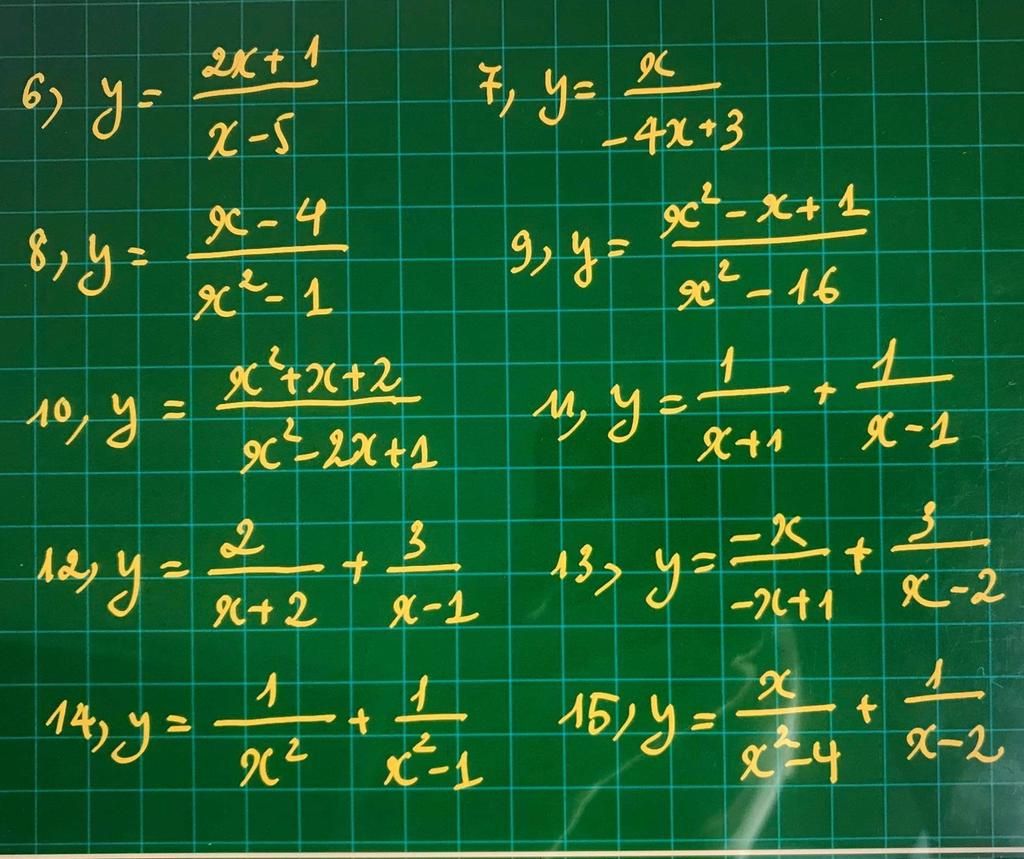 6, y = (2x + 1)/(x - 5) 7, y = x/(-4x + 3)
8, y = (x - 4)/(x² - 1) 9, y = (x² - x + 1)/(x² - 16)
10, y = (x² + x + 2)/(x² - 2x + 1) 11, y = 1/(x + 1) + 1/(x - 1)
12, y = 2/(x + 2) + 3/(x - 1) 13, y = -x/(-x + 1) + 3/(x - 2)
14, y = 1/x² + 1/(x² - 1) 15, y = x/(x² - 4) + 1/(x - 2)